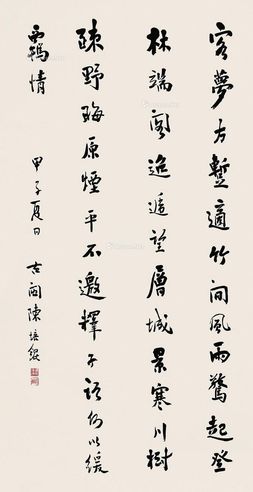 客夢方蹔適竹間風雨驚起登
林端閣迤逦望層城景寒川樹
疎野晦原煙平不邀釋子話何以緩
羈情
甲子夏日 古閩陳培錕